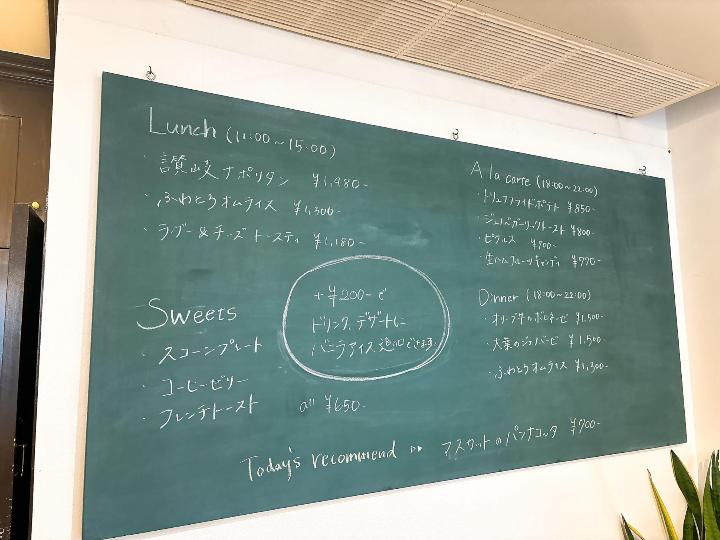 Lunch (11:00~15:00)
・讃岐ナポリタン ¥1,980-
・ふわとろオムライス ¥1,300-
・ラグー&チーズトースティ ¥1,180-
+¥200-で
ドリンク、デザートに
バニラアイス追加できます。
Sweets
・スコーンプレート
・コーヒーゼリー
・フレンチトースト all ¥650-
A la carte (18:00~22:00)
・トリュフフライドポテト ¥850-
・ガーリックトースト ¥800-
・ピクルス
・生ハムフルーツ ¥770-
Dinner (18:00~22:00)
・オリーブ牛のボロネーゼ ¥1,500-
・大葉のジェノベーゼ ¥1,500-
・ふわとろオムライス ¥1,300-
Today's recommend ▸▸ マスカットのパンナコッタ ¥700-